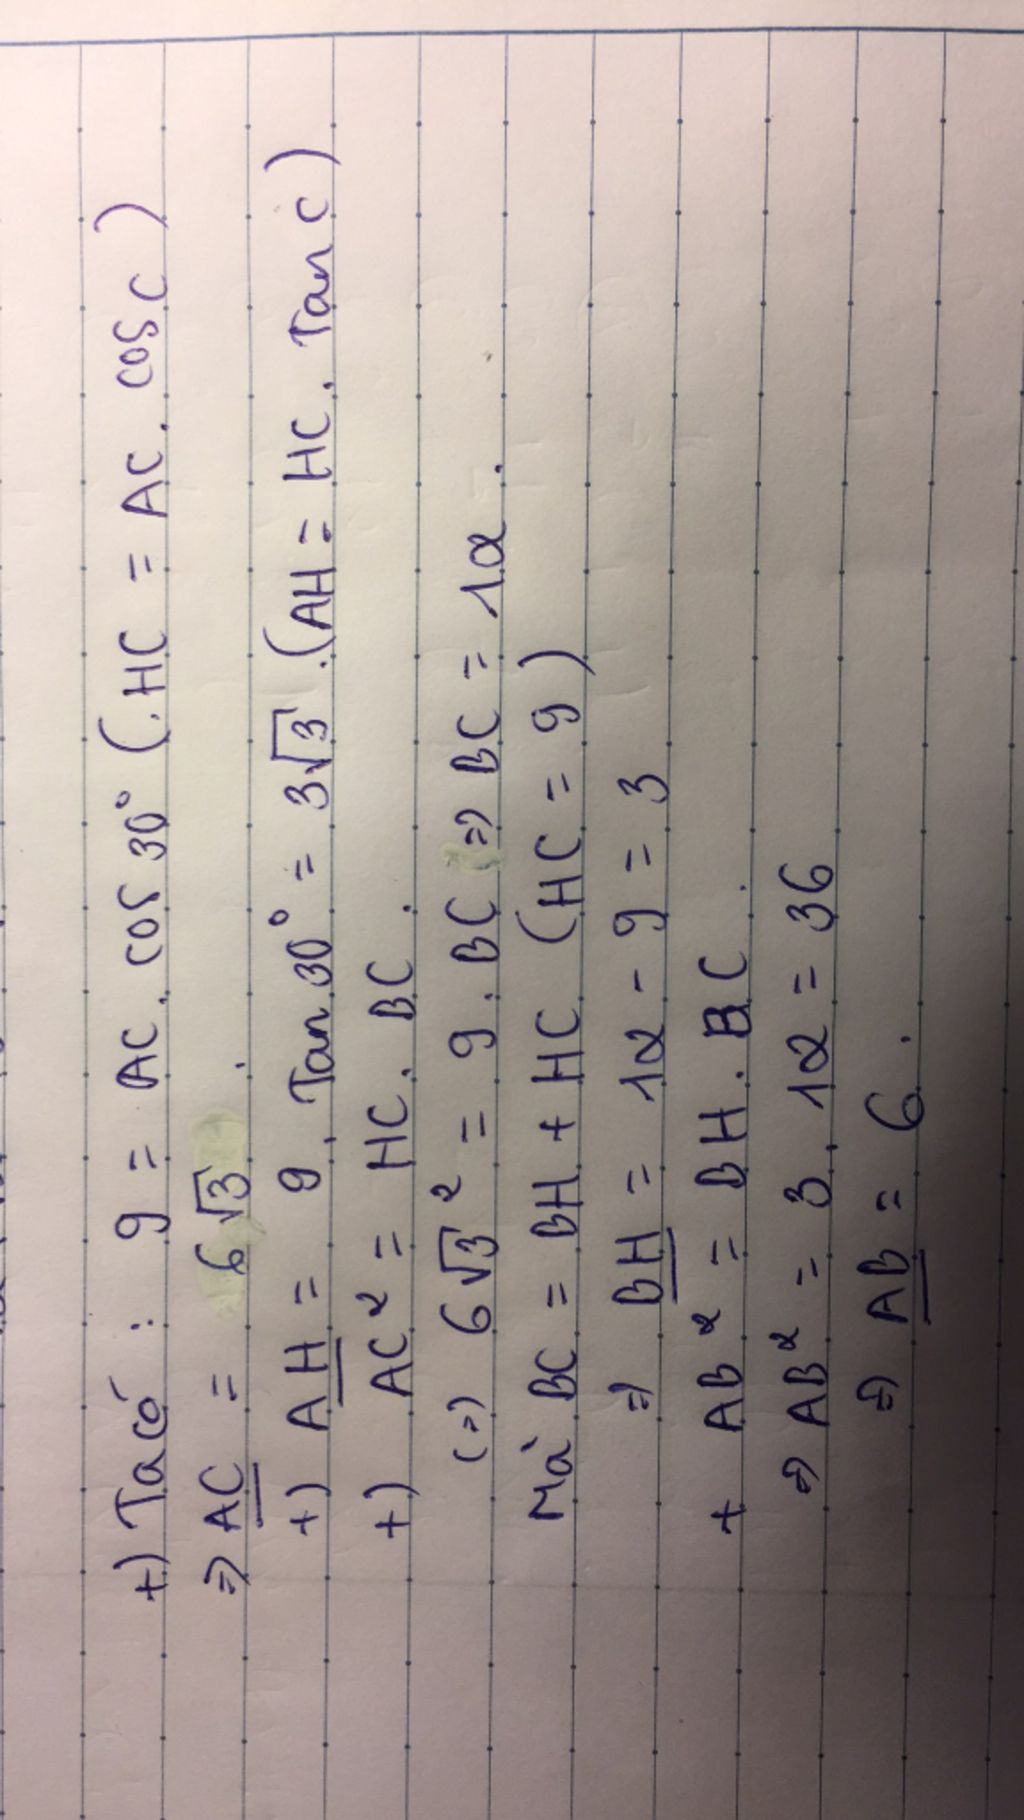 +) Ta có : 9 = AC . cos 30° ( HC = AC . cos C )
=> AC = 6√3 .
+) AH = 9 . Tan 30° = 3√3 . (AH = HC . Tan C )
+) AC² = HC . BC .
(=) 6√3² = 9 . BC => BC = 12 .
Mà BC = BH + HC (HC = 9 )
=> BH = 12 - 9 = 3
+ AB² = BH . BC .
=> AB² = 3 . 12 = 36
=> AB = 6 .